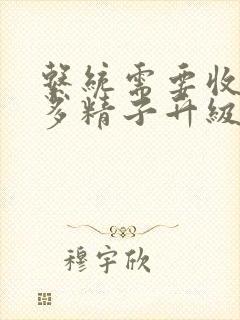 繫統需要收
多精子升級
穆宇欣